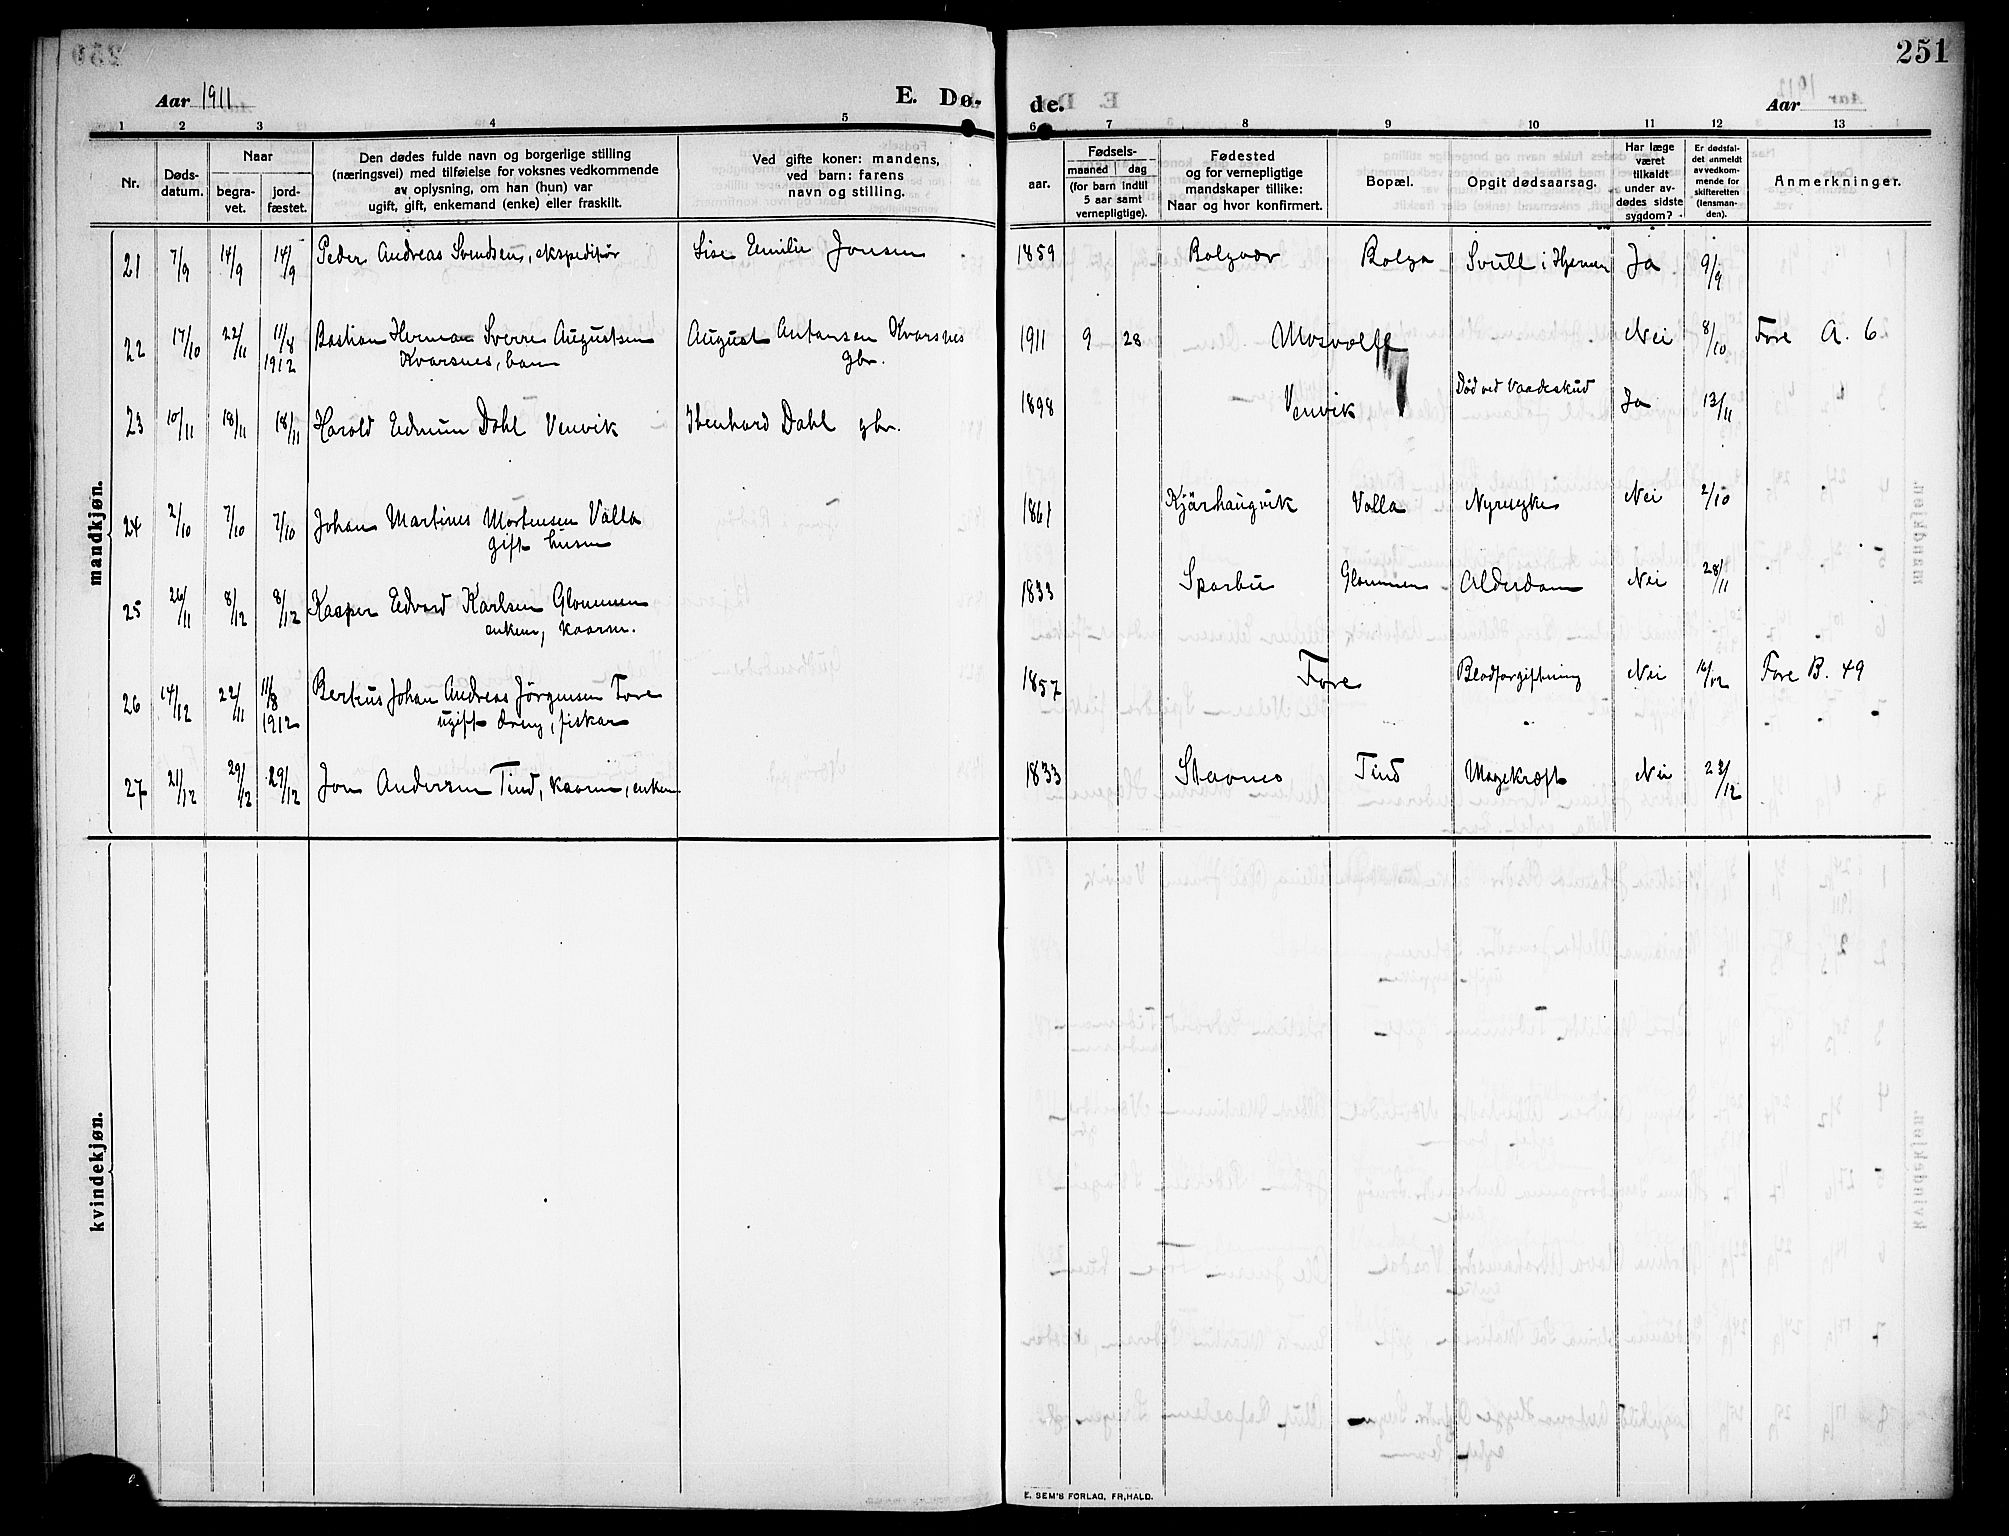 251
Aar 1911
E. Dø-
de.
Aar
1 2 3 4 5 6 7 8 9 10 11 12 13
Nr.
Døds-
datum.
Naar
begra-
vet.
jord-
fæstet.
Den dødes fulde navn og borgerlige stilling
(næringsvei) med tilføielse for voksnes vedkommende
av oplysning, om han (hun) var
ugift, gift, enkemand (enke) eller fraskilt.
Ved gifte koner: mandens,
ved barn: farens
navn og stilling.
Fødsels-
aar.
maaned
dag
(for barn indtil
5 aar samt
vernepligtige).
Fødested
og for vernepligtige
mandskaper tillike:
Naar og hvor konfirmert.
Bopæl.
Opgit dødsaarsag.
Har læge
været
tilkaldt
under av-
dødes sidste
sygdom?
Er dødsfal-
det anmeldt
av vedkom-
mende for
skifteretten
(lensman-
den).
Anmerkninger.
mandkjøn.
21 7/9 14/9 14/9 Peder Andreas Svendsen, ekspeditør Lise Emilie Jonsen 1859 Bolgvær Bolga Svull i Hjernen Ja 9/9
22 17/10 22/11 11/8 1912 Bastian Herman Sverre Augustsen August Antonsen Kvarsnes 1911 9 28 Mosvolll Nei 8/10 Fore A. 6
Kvarsnes, barn gbr.
23 10/11 18/11 18/11 Harald Edmun Dahl Venvik Ibenhard Dahl gbr. 1898 Venvik Død ved Vaadeskud Ja 13/11
24 2/10 7/10 7/10 Johan Martines Mortensen Valla 1861 Kjärhaugvik Valla Nyresyke Nei 2/10
gift husm
25 26/11 8/12 8/12 Kasper Edvard Karlsen Glommen 1833 Sparbu Glommen Alderdom Nei 28/11
enkem, kaarm.
26 14/12 22/11 11/8 1912 Bertius Johan Andreas Jörgensen Fore 1857 Fore Blodforgiftning Nei 16/12 Fore B. 49
ugift dreng, fisker
27 21/12 29/12 29/12 Jon Andersen Tind, kaarm, enkem 1833 Stavnes Tind Mavekræft Nei 23/12
kvindekjøn.
E. SEM'S FORLAG, FR,HALD.